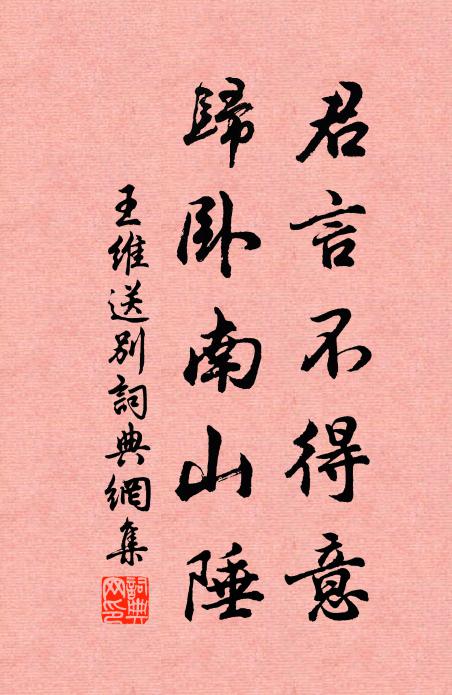 君言不得意
歸卧南山陲
王維送別詞典網集
詞典網印